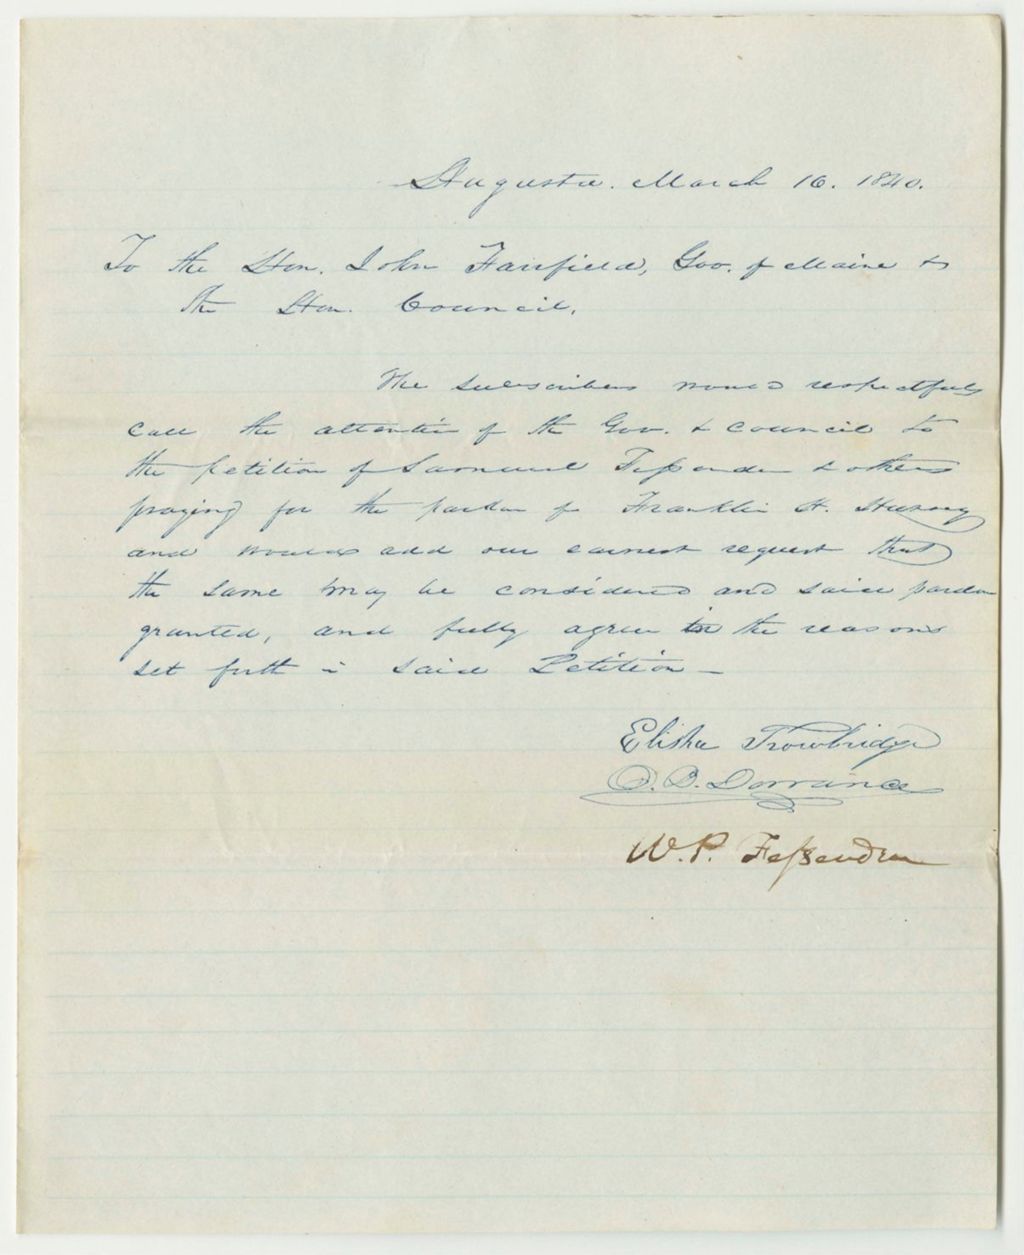 Augusta. March 16. 1840.
To the Hon. John Fairfield, Gov. of Maine &
the Hon. Council.
The subscribers would respectfully
call the attention of the Gov. & council to
the petition of Samuel Feſsenden & others
praying for the pardon of Franklin H.
and would add our earnest request that
the same may be considered and said pardon
granted, and fully agree in the reasons
set forth in said Petition —
Elisha Trowbridge
O. B. Dorrance
W. P. Feſsenden